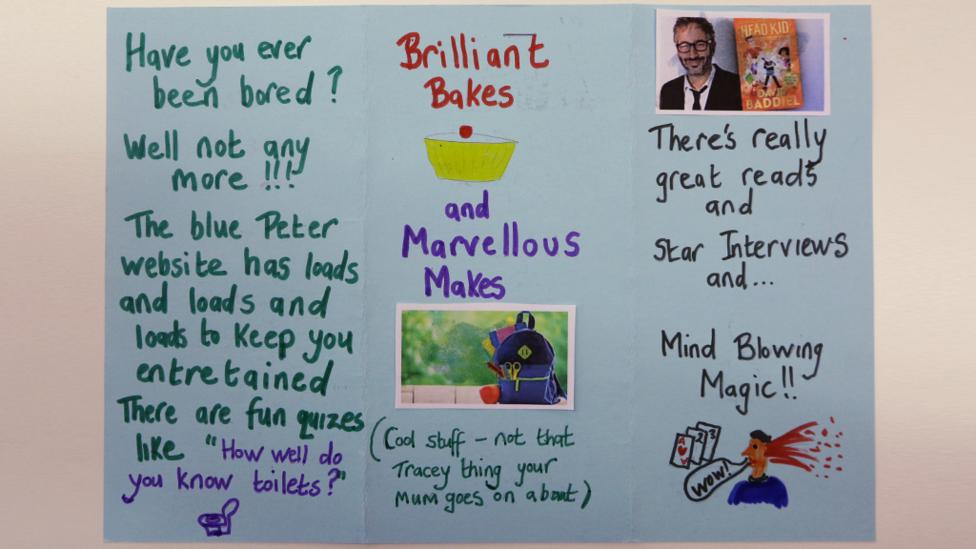 Have you ever
been bored?
Well not any
more!!!
The blue Peter
website has loads
and loads and
loads to keep you
entretained
There are fun quizes
like "How well do
you know toilets?"
Brilliant
Bakes
and
Marvellous
Makes
(Cool stuff - not that
Tracey thing your
Mum goes on about)
HEAD KID
DAVID
BADDIEL
There's really
great reads
and
Star Interviews
and...
Mind Blowing
Magic!!
A 2 3
WOW!